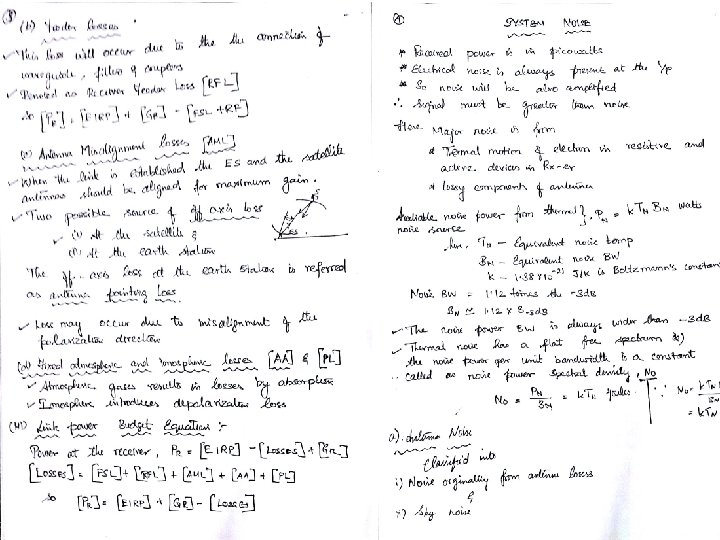 (b) Feeder losses
This loss will occur due to the the connection of
waveguide, filter & couplers
Denoted as Receiver Feeder Loss [RFL]
So [PR] = [EIRP] + [GR] - [FSL + RFL]
(c) Antenna Misalignment losses [AML]
When the link is established the ES and the satellite
antennas should be aligned for maximum gain.
Two possible source of off axis loss
(i) At the satellite &
(ii) At the earth station
S
ES
The off-axis loss at the earth station is referred
as antenna pointing loss
Loss may occur due to misalignment of the
polarization direction
(d) Fixed atmospheric and Ionospheric losses [AA] & [PL]
Atmospheric gases results in losses by absorption
Ionosphere introduces depolarization loss
Link power Budget Equation :-
Power at the receiver, PR = [EIRP] - [LOSSES] + [GR]
[LOSSES] = [FSL] + [RFL] + [AML] + [AA] + [PL]
So [PR] = [EIRP] + [GR] - [LOSSES]
SYSTEM NOISE
* Received power is in picowatts
* Electrical noise is always present at the i/p
* So noise will be also amplified
∴ Signal must be greater than noise
Here Major noise is from
* Thermal motion of electron in resistive and
active devices in Rx-er
* lossy components of antenna
Available noise power from thermal } PN = k TN BN watts
noise source
TN - Equivalent noise temp
BN - Equivalent noise BW
k - 1.38 x 10^-23 J/K is Boltzmann's constant
Noise BW = 1.12 times the -3dB
BN ≃ 1.12 x B-3dB
The noise power BW is always wider than -3dB
Thermal noise has a flat freq spectrum &)
the noise power per unit bandwidth is a constant
called as noise power spectral density, No
No = PN / BN = k TN joules
= kTN
a). Antenna Noise
Classified into
i) Noise originating from antenna losses
&
Sky noise